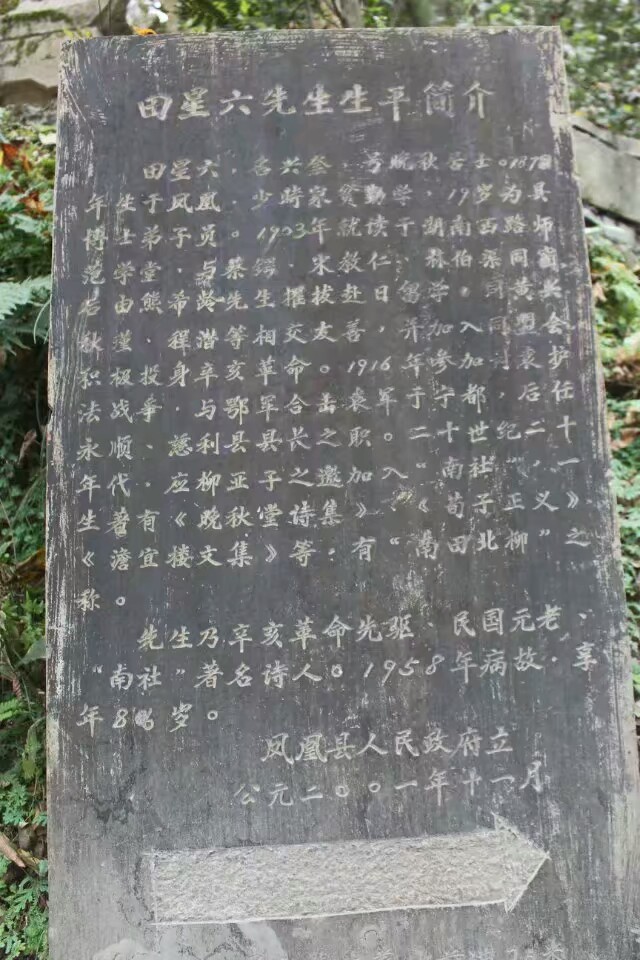 田星六先生生平简介
田星六，名兴奎，号晚秋居士。187
年生于凤凰，少时家贫勤学，19岁为县
博士弟子员。1903年就读于湖南西路师
范学堂，与蔡锷、宋教仁、林伯渠同窗，
后由熊希龄先生擢拔赴日留学。同黄兴、
秋瑾、程潜等相交友善，并加入同盟会，
积极投身辛亥革命。1916年参加讨袁护
法战争，与鄂军合击袁军于宁都，后任
永顺、慈利县县长之职。二十世纪二十
年代，应柳亚子之邀加入“南社”，一
生著有《晚秋堂诗集》、《荀子正义》
《澹宜楼文集》等，有“南田北柳”之
称。
先生乃辛亥革命先驱、民国元老、
“南社”著名诗人。1958年病故，享
年8岁。
凤凰县人民政府立
公元二〇〇一年十一月